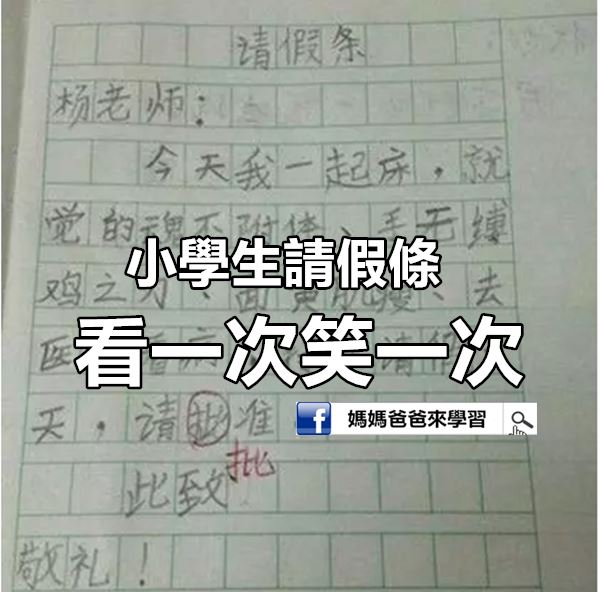 请假条
杨老师:
今天我一起床,就
觉的魂不附体、手无缚
鸡之力、面黄肌瘦、去
小學生請假條
看一次笑一次
医
请假
天,请批准
批
媽媽爸爸來學習
此致
敬礼!